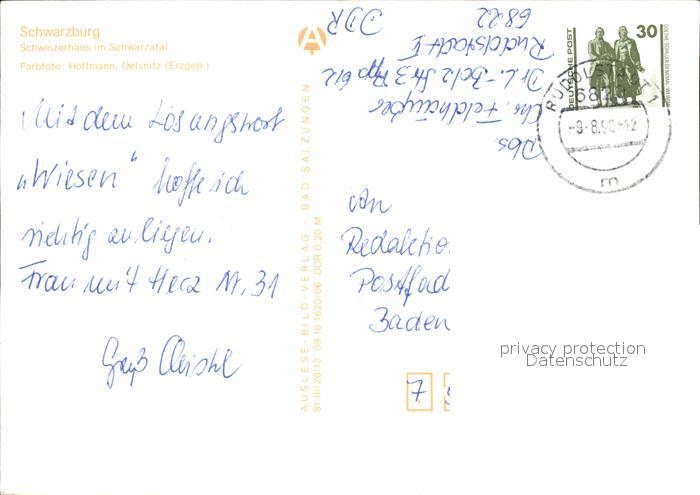 Schwarzburg
Schweizerhaus im Schwarzatal
Farbfoto: Hoffmann, Oelsnitz (Erzgeb.)
Mit dem Lösungswort
„Wiesen“ hoffe ich
richtig zu liegen.
Frau mit Herz Nr. 31
Gruß
AUSLESE-BILD-VERLAG · BAD SALZUNGEN
St-III/26/13 09 10 1623/06 DDR 0,20 M
Abs.
Chr.
Dr.
Rudolstadt
6822
DDR
DEUTSCHE POST
30
GOETHE-SCHILLER-DENKMAL · WEIMAR
RUDOLSTADT 1
682
-9-8.90-12
m
An
Redaktio
Postfad
Baden
7
privacy protection
Datenschutz